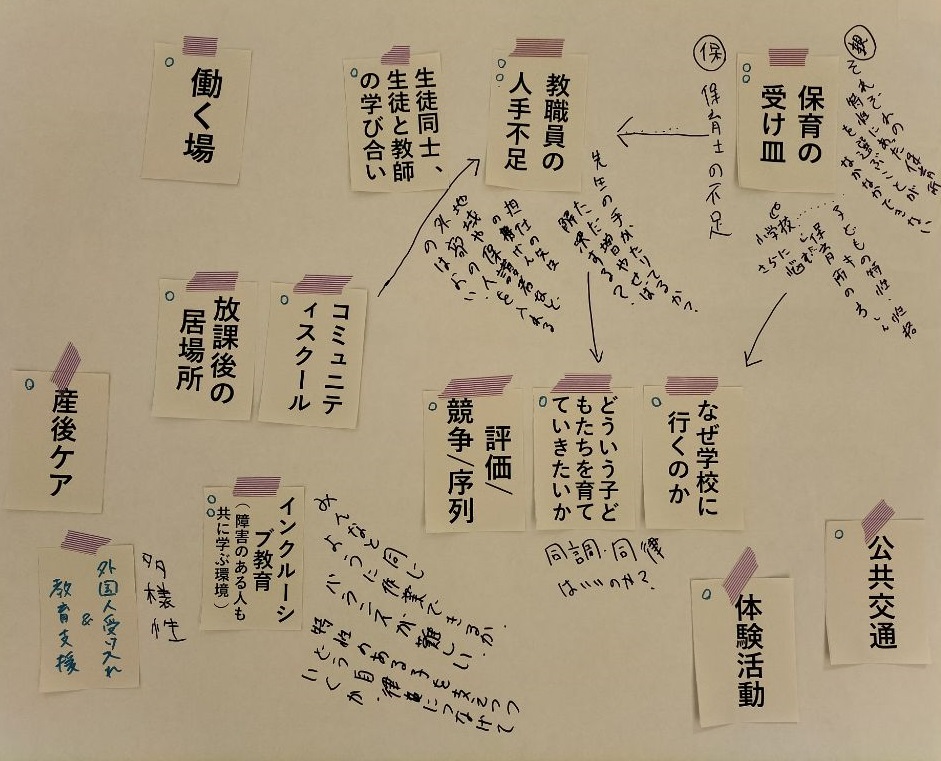 働く場
生徒同士、
生徒と教師
の学び合い
教職員の
人手不足
保
保育士の不足
保育の
受け皿
親
それぞれの保育所
特性にあった
を選ぶことが
なかなかできない
子どもの特性・性格
小学校
さらに悩む
先生の手がたりてるか?
ただ増やせば
解決するて
担任の先生
の外は
地域や保護者など
放課後の
居場所
コミュニテ
ィスクール
産後ケア
評価/
競争/序列
どういう子ど
もたちを育て
ていきたいか
なぜ学校に
行くのか
同調・同律
はいいのか?
インクルーシ
ブ教育
(障害のある人も
共に学ぶ環境)
みんなと同じ
ように作業できるか.
バランスが難しい
特性のある子を支えつつ
どう自律につなげて
いくか
外国人受け入れ
&
教育支援
多様性
体験活動
公共交通